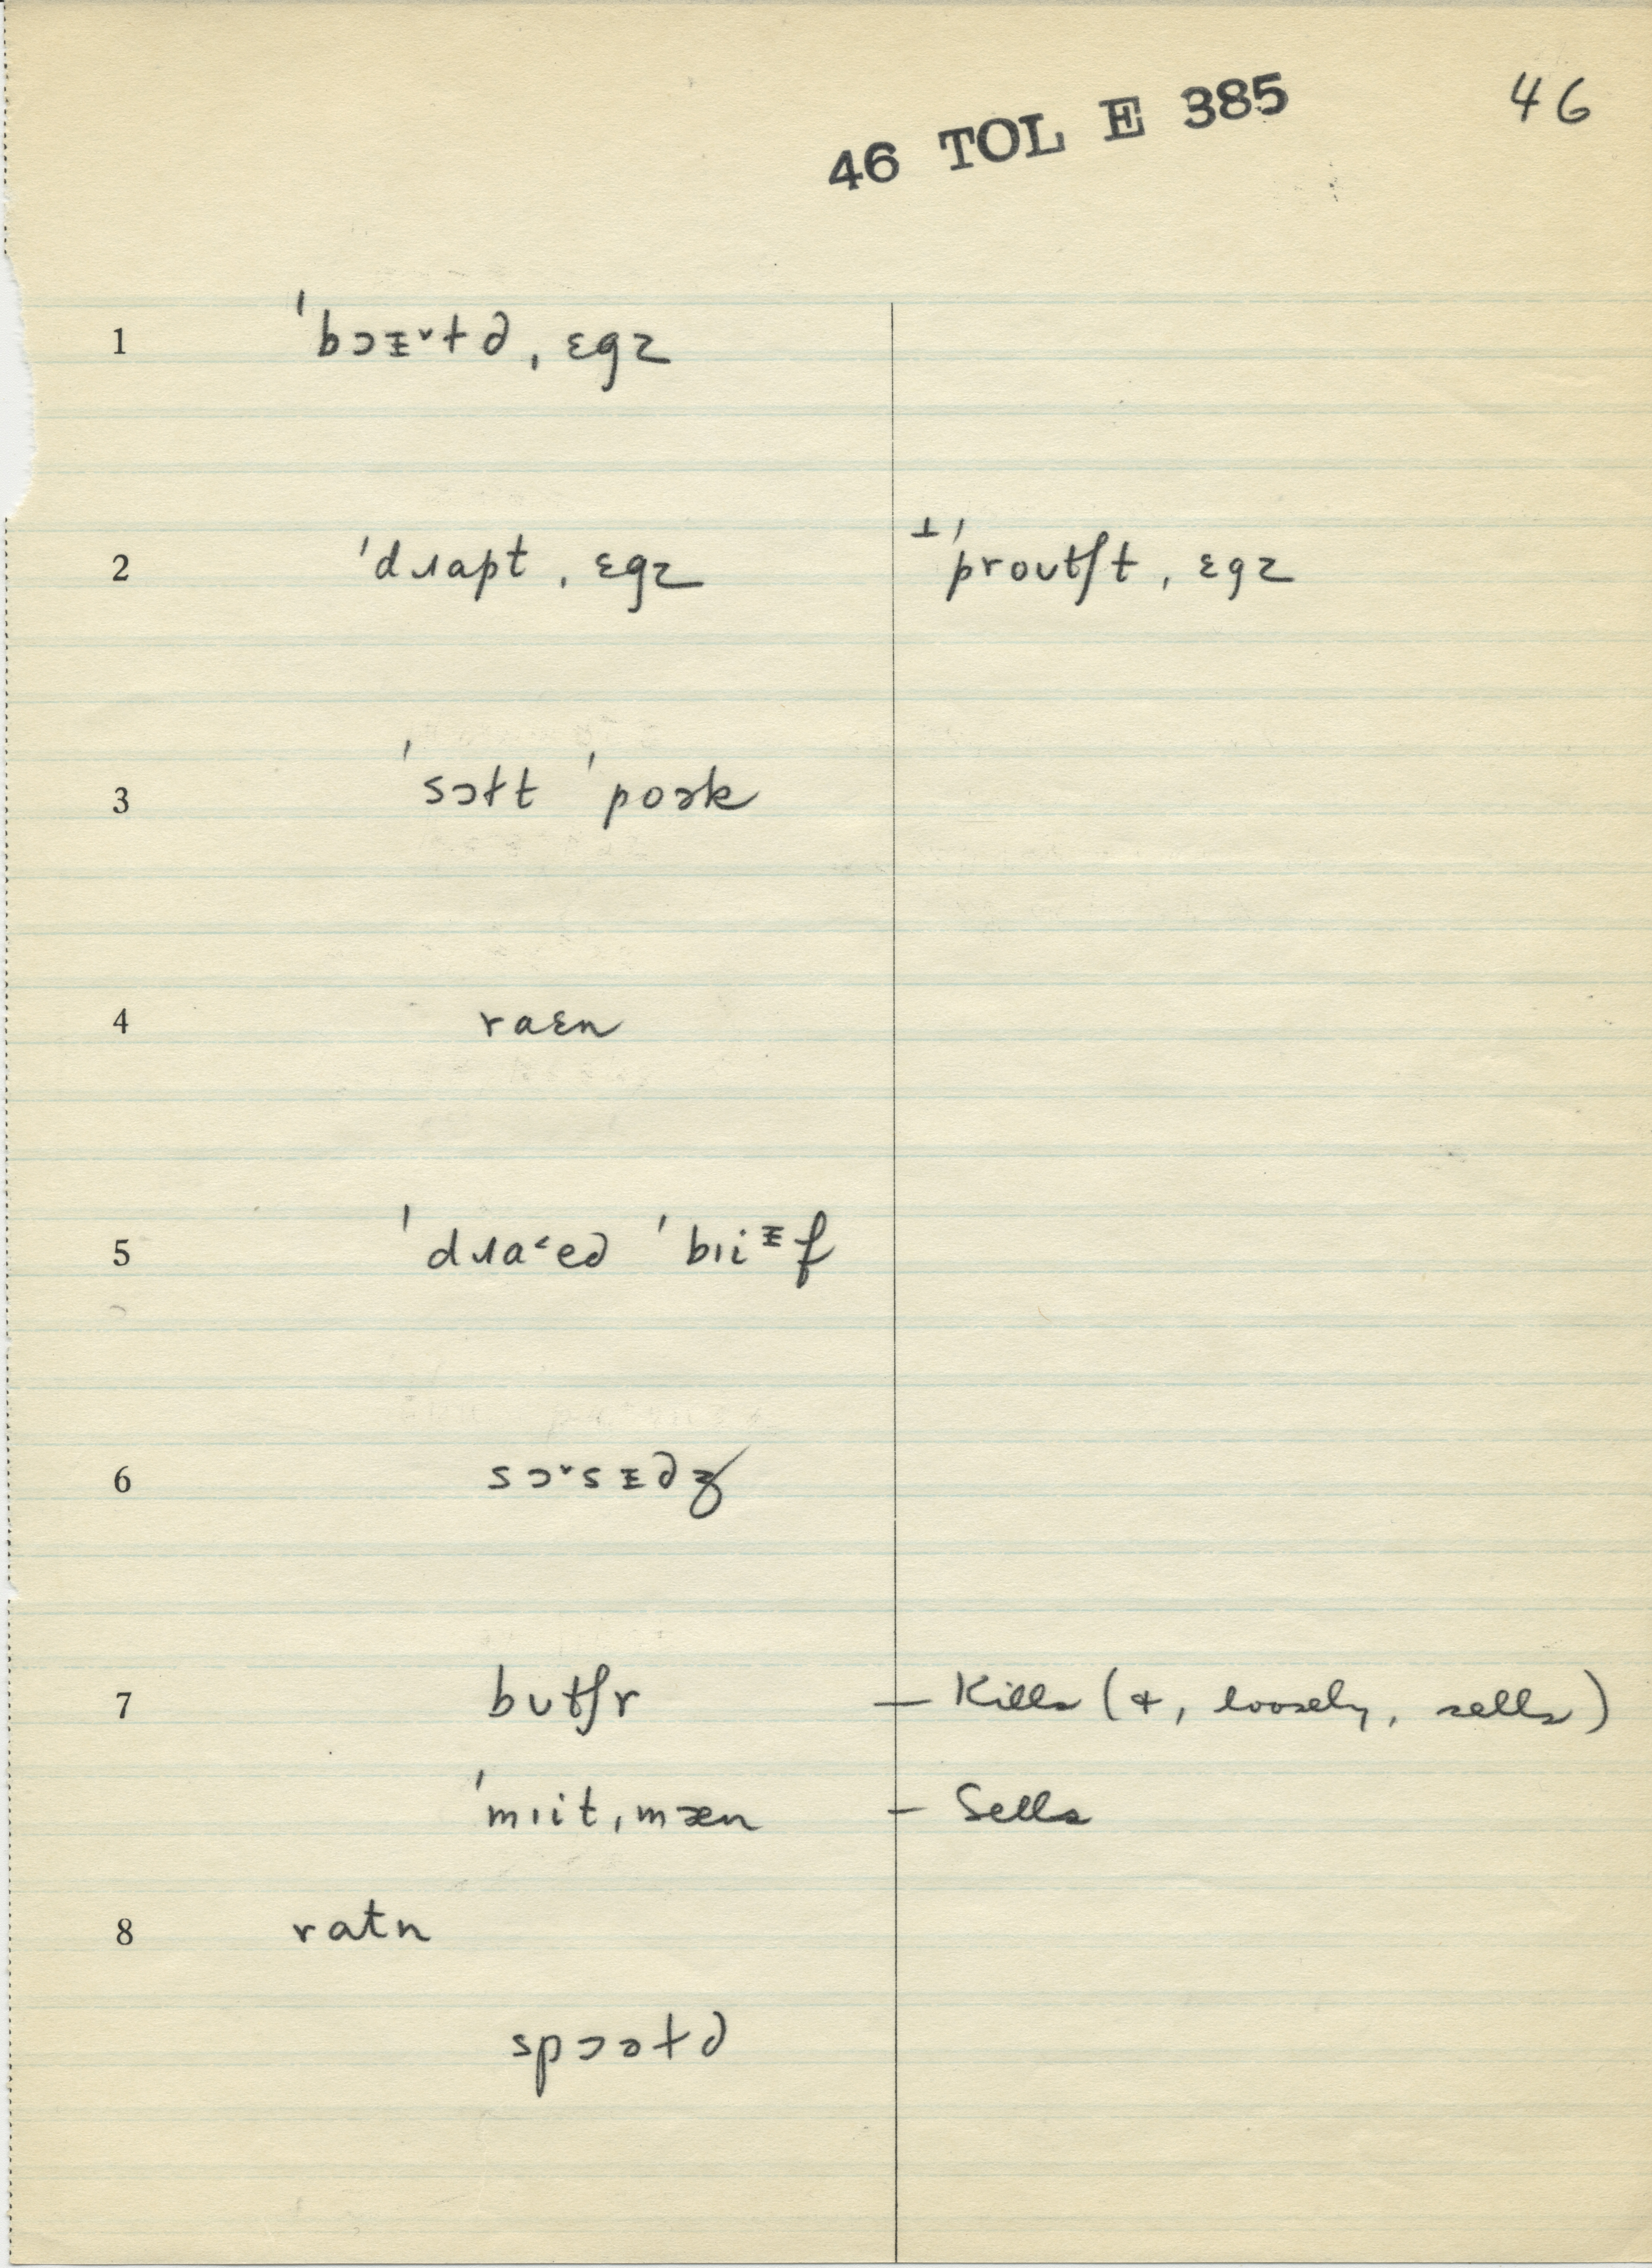 46 TOL E 385
46
1 ˈbɔᵻ˅ɫd, ɛgz
2 ˈdɹapt, ɛgz ⊥ˈproutʃt, ɛgz
3 ˈsɔɫt ˈpoɚk
4 raɛn
5 ˈdɹa˂ed ˈbɪiᵻf
6 sɔ˅sᵻdʒ
7 butʃr — Kills (+, loosely, sells)
ˈmɪit,mæn — Sells
8 ratn
spɔəɫd